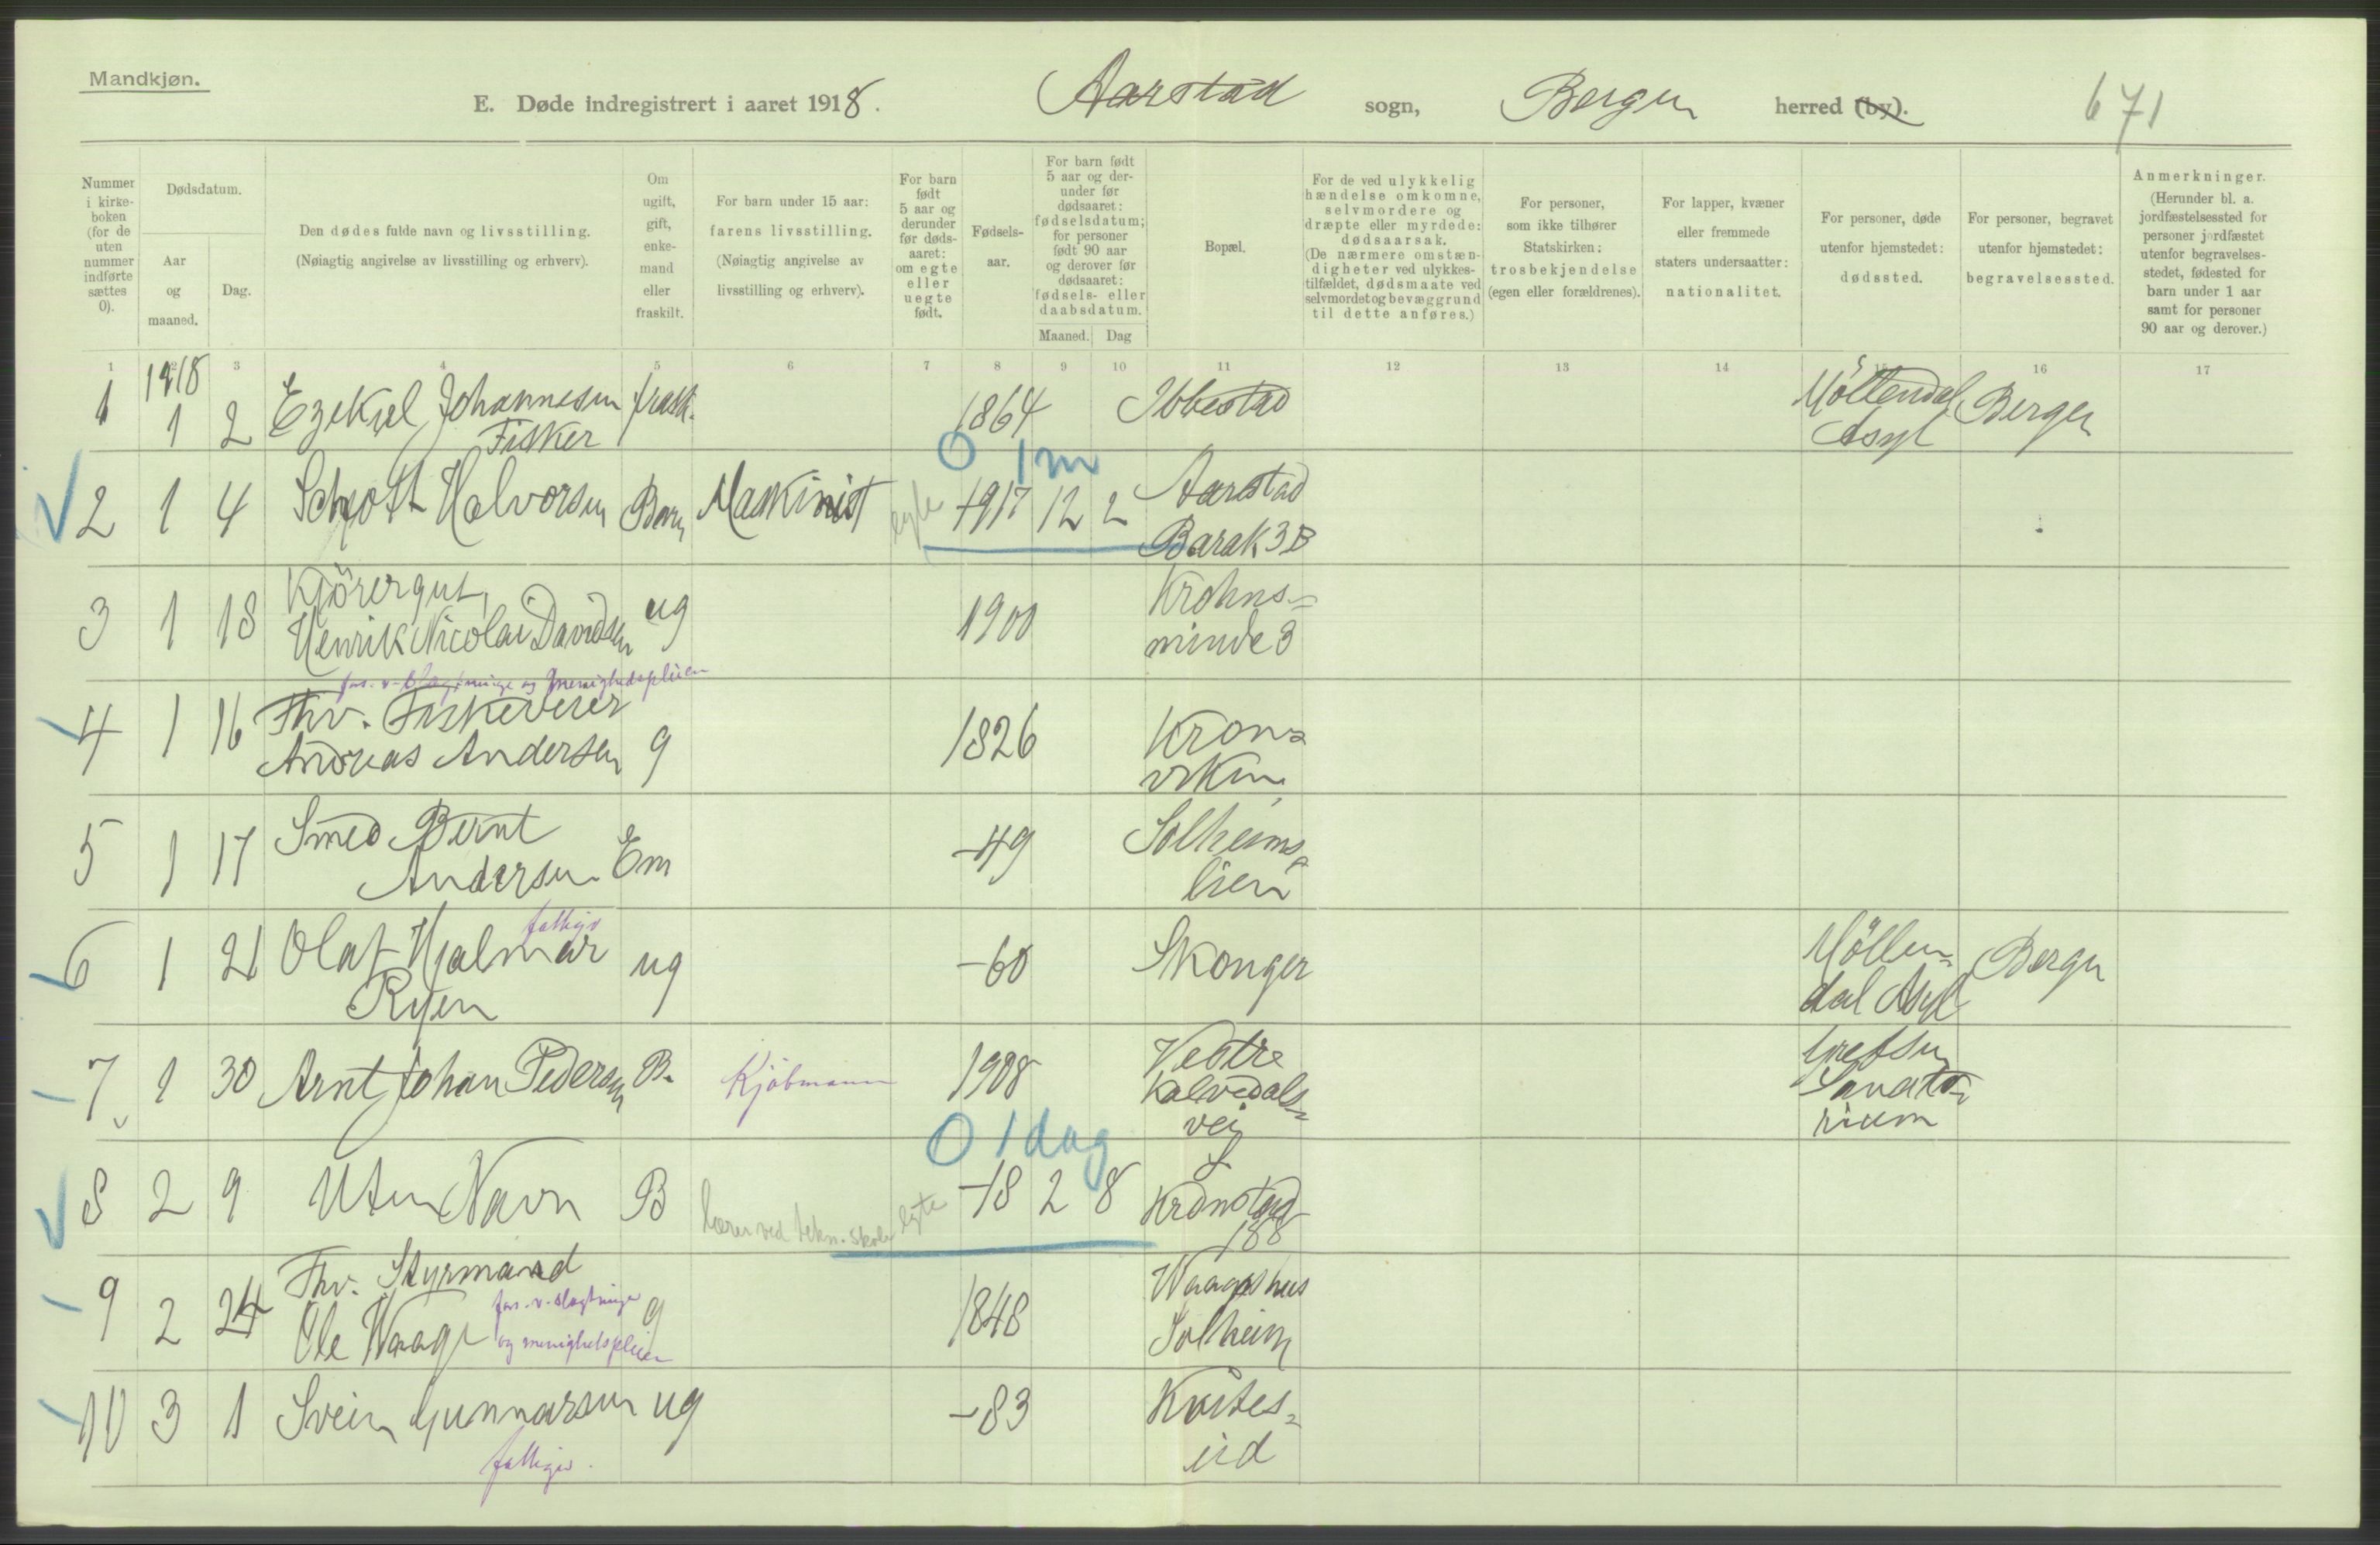 Mandkjøn.
E. Døde indregistrert i aaret 1918. Aarstad sogn, Bergen herred (by). 671
Nummer i kirke- boken (for de uten nummer indførte sættes 0).
Dødsdatum.
Aar og maaned.
Dag.
Den dødes fulde navn og livsstilling.
(Nøiagtig angivelse av livsstilling og erhverv).
Om ugift, gift, enke- mand eller fraskilt.
For barn under 15 aar: farens livsstilling.
(Nøiagtig angivelse av livsstilling og erhverv).
For barn født 5 aar og derunder før døds- aaret: om egte eller uegte født.
Fødsels- aar.
For barn født 5 aar og der- under før dødsaaret: fødselsdatum; for personer født 90 aar og derover før dødsaaret: fødsels- eller daabsdatum.
Maaned. Dag
Bopæl.
For de ved ulykkelig hændelse omkomne, selvmordere og dræpte eller myrdede: dødsaarsak.
(De nærmere omstæn- digheter ved ulykkes- tilfældet, dødsmaate ved selvmordet og bevæggrund til dette anføres.)
For personer, som ikke tilhører Statskirken: trosbekjendelse (egen eller forældrenes).
For lapper, kvæner eller fremmede staters undersaatter: nationalitet.
For personer, døde utenfor hjemstedet: dødssted.
For personer, begravet utenfor hjemstedet: begravelsessted.
Anmerkninger.
(Herunder bl. a. jordfæstelsessted for personer jordfæstet utenfor begravelses- stedet, fødested for barn under 1 aar samt for personer 90 aar og derover.)
1 2 3 4 5 6 7 8 9 10 11 12 13 14 15 16 17
1918
1 1 2 Ezekiel Johannesen frask. 1864 Ibbestad Möllendal Bergen
Fisker Asyl
0 1 m
2 1 4 Schjøtt Halvorsen Barn Maskinist egte 1917 12 2 Aarstad
Barak 3B
3 1 18 Kjörergut, ug 1900 Krohns=
Henrik Nicolai Davidsen minde 3
fors. v. slægtninge og menighedspleien
4 1 16 Fhv. Fiskeveier 1826 Kron=
Andreas Andersen g viken
5 1 17 Smed Bernt Em -49 Solheims=
Andersen lien
fattigv
6 1 21 Olaf Hjalmar ug -60 Skonger Möllen= Bergen
Ryen dal Asyl
7 1 30 Arnt Johan Pedersen B. Kjøbmann 1908 Vestre Grefsen
Kalvedals= Sanato=
vei rium
0 1 dag
8 2 9 Uten Navn B lærer ved tekn. skole egte -18 2 8
Kronstad
188
9 2 24 Fhv. Styrmand g 1848 Waages hus
Ole Waage fors. v. slægtninge Solheim
og menighetspleien
10 3 1 Svein Gunnarsen ug -83 Kvites=
eid
fattigv.